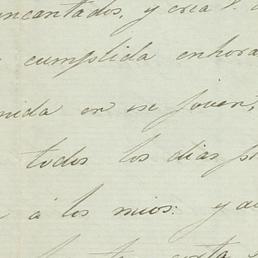 encantados, y crea V.
cumplida enhora
nida en ese joven,
todos los dias p
á los mios: y a
carta